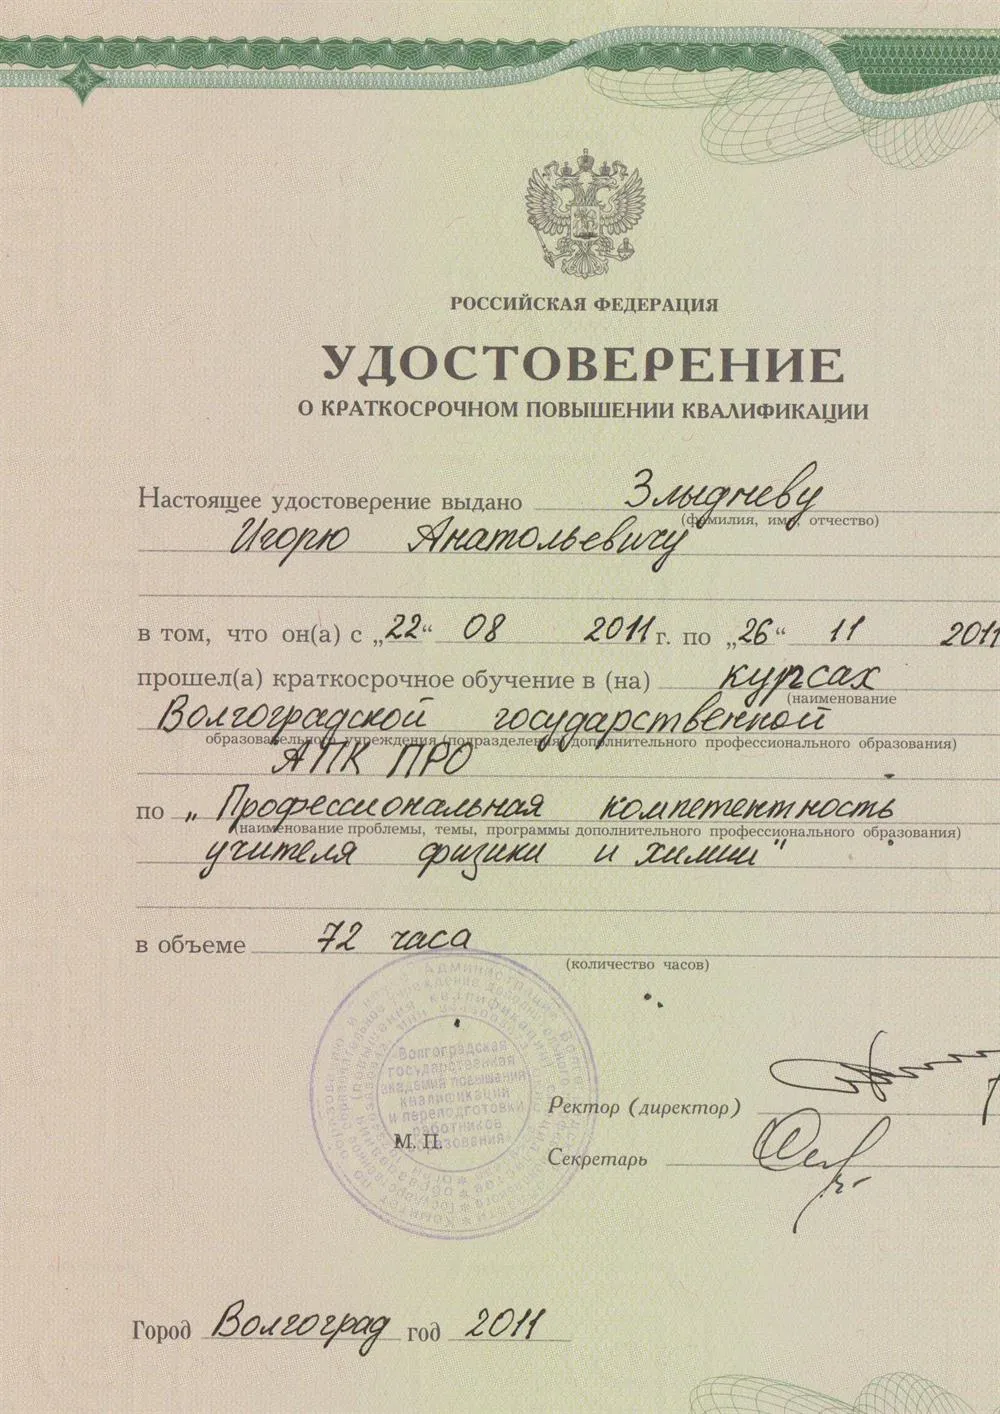 РОССИЙСКАЯ ФЕДЕРАЦИЯ
УДОСТОВЕРЕНИЕ
О КРАТКОСРОЧНОМ ПОВЫШЕНИИ КВАЛИФИКАЦИИ
Настоящее удостоверение выдано Злыдневу
(фамилия, имя, отчество)
Игорю Анатольевичу
в том, что он(а) с „22“ 08 2011 г. по „26“ 11 2011
прошел(а) краткосрочное обучение в (на) курсах
(наименование
Волгоградской государственной
образовательного учреждения (подразделения) дополнительного профессионального образования)
АПК ПРО
по „Профессиональная компетентность
(наименование проблемы, темы, программы дополнительного профессионального образования)
учителя физики и химии"
в объеме 72 часа
(количество часов)
Волгоградская
государственная
академия повышения
квалификации
и переподготовки
работников
образования
М. П.
Ректор (директор)
Секретарь
Город Волгоград год 2011